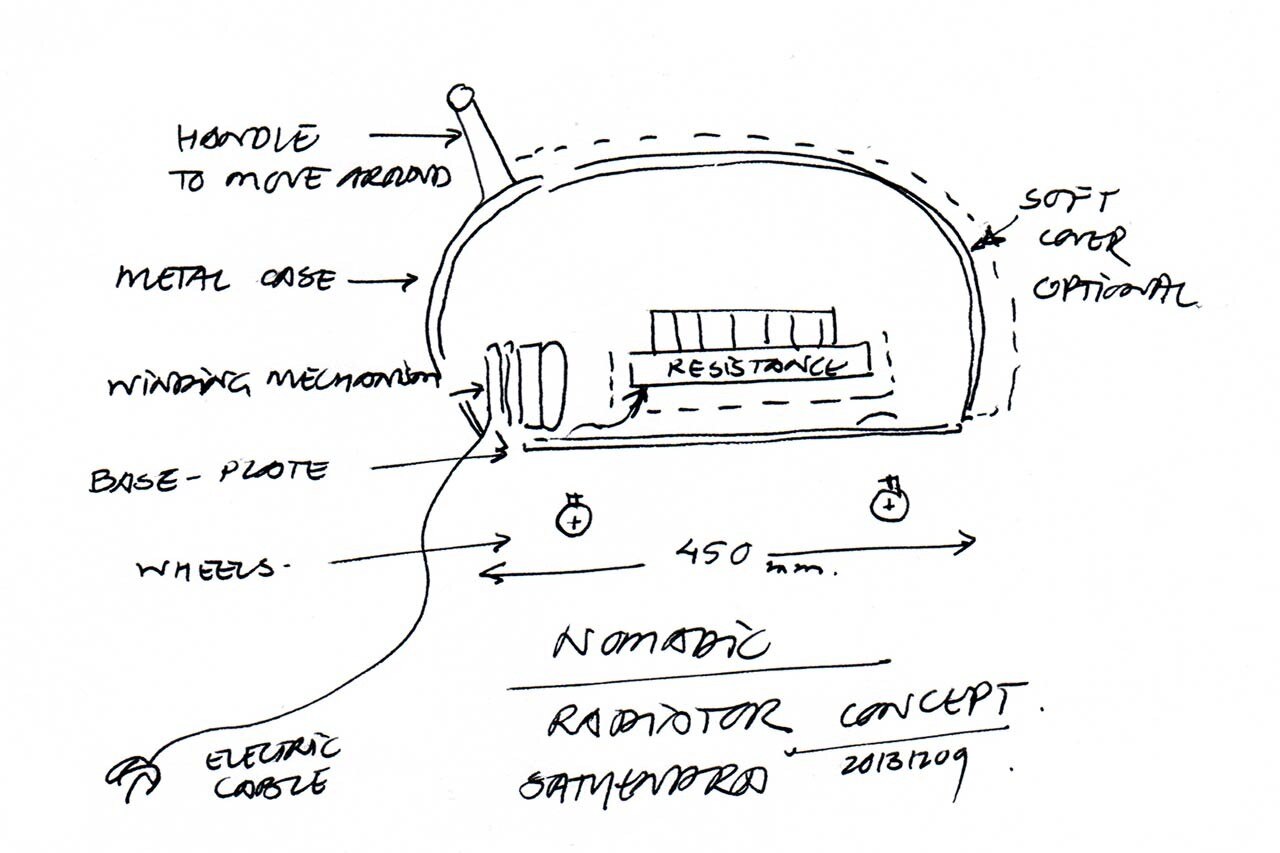 HANDLE
TO MOVE AROUND
METAL CASE
SOFT
COVER
OPTIONAL
WINDING MECHANISM
RESISTANCE
BASE-PLATE
WHEELS-
450
mm.
NOMADIC
RADIATOR CONCEPT.
SATHENDRA 20131209.
ELECTRIC
CABLE